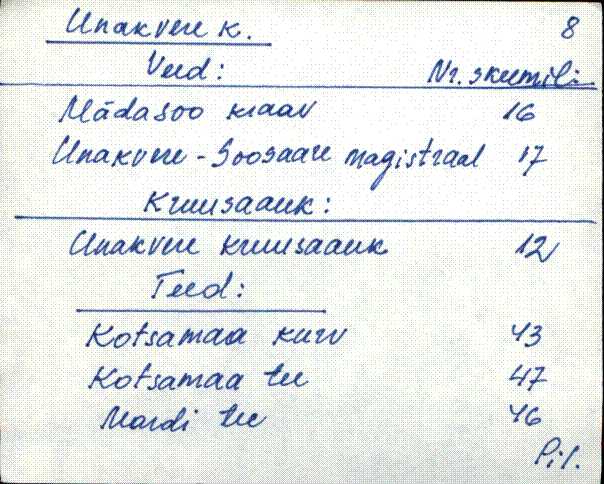 Unakvere k. 8
Veed: Nr. skeemil:
Mädasoo kraav 16
Unakvere-Soosaare magistraal 17
Kruusaauk:
Unakvere kruusaauk 12
Teed:
Kotsamaa kurv 43
Kotsamaa tee 47
Mardi tee 46
Pil.